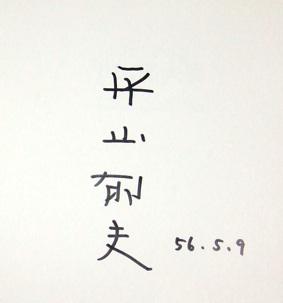 平山郁夫
56.5.9